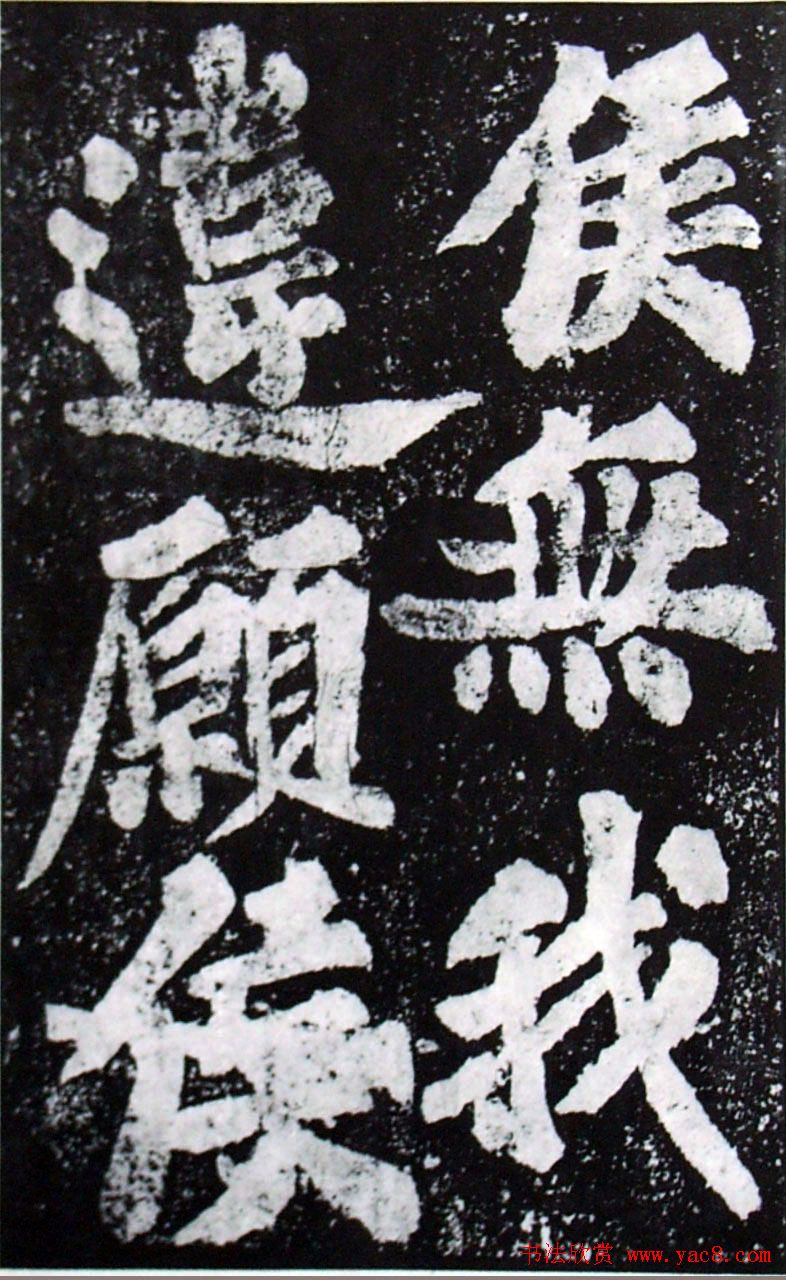 侯無我
違願侯
书法欣赏 www.yac8.com